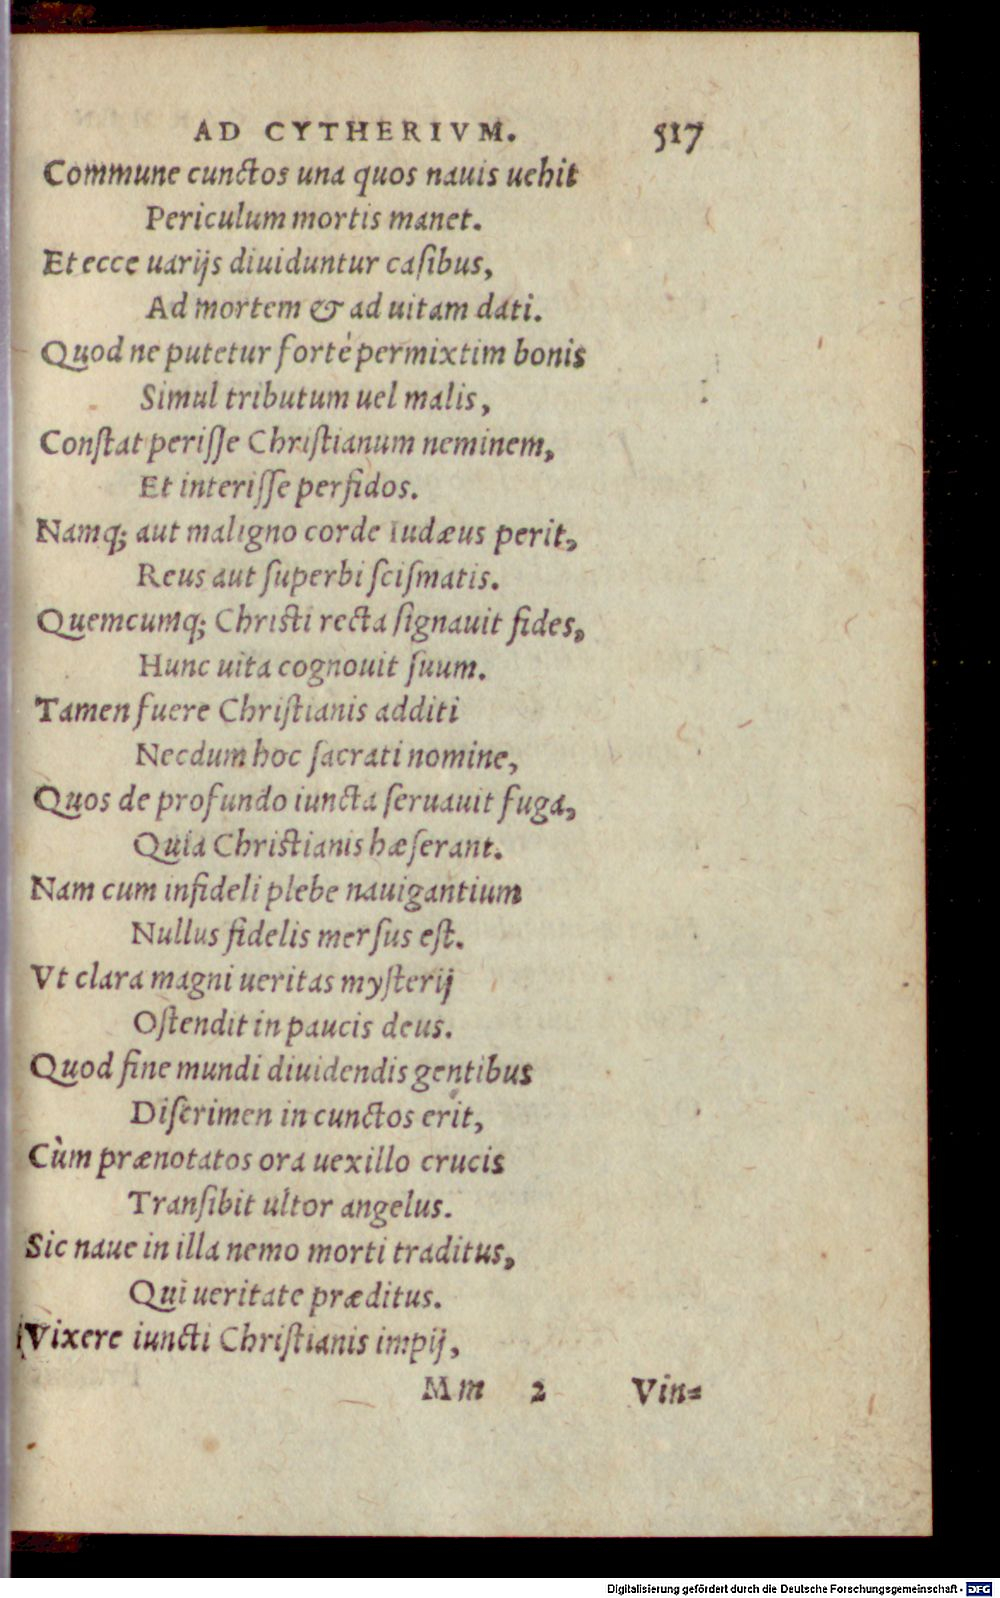 AD CYTHERIVM. 517
Commune cunctos una quos nauis uehit
Periculum mortis manet.
Et ecce uarijs diuiduntur caſibus,
Ad mortem & ad uitam dati.
Quod ne putetur fortè permixtim bonis
Simul tributum uel malis,
Conſtat periſſe Chriſtianum neminem,
Et interiſſe perfidos.
Namq; aut maligno corde Iudæus perit,
Reus aut ſuperbi ſciſmatis.
Quemcumq; Chriſti recta ſignauit fides,
Hunc uita cognouit ſuum.
Tamen fuere Chriſtianis additi
Necdum hoc ſacrati nomine,
Quos de profundo iuncta ſeruauit fuga,
Quia Chriſtianis hæſerant.
Nam cum infideli plebe nauigantium
Nullus fidelis merſus eſt.
Vt clara magni ueritas myſterij
Oſtendit in paucis deus.
Quod fine mundi diuidendis gentibus
Diſcrimen in cunctos erit,
Cùm prænotatos ora uexillo crucis
Tranſibit ultor angelus.
Sic naue in illa nemo morti traditus,
Qui ueritate præditus.
Vixere iuncti Chriſtianis impij,
Mm 2 Vin=
Digitalisierung gefördert durch die Deutsche Forschungsgemeinschaft - DFG